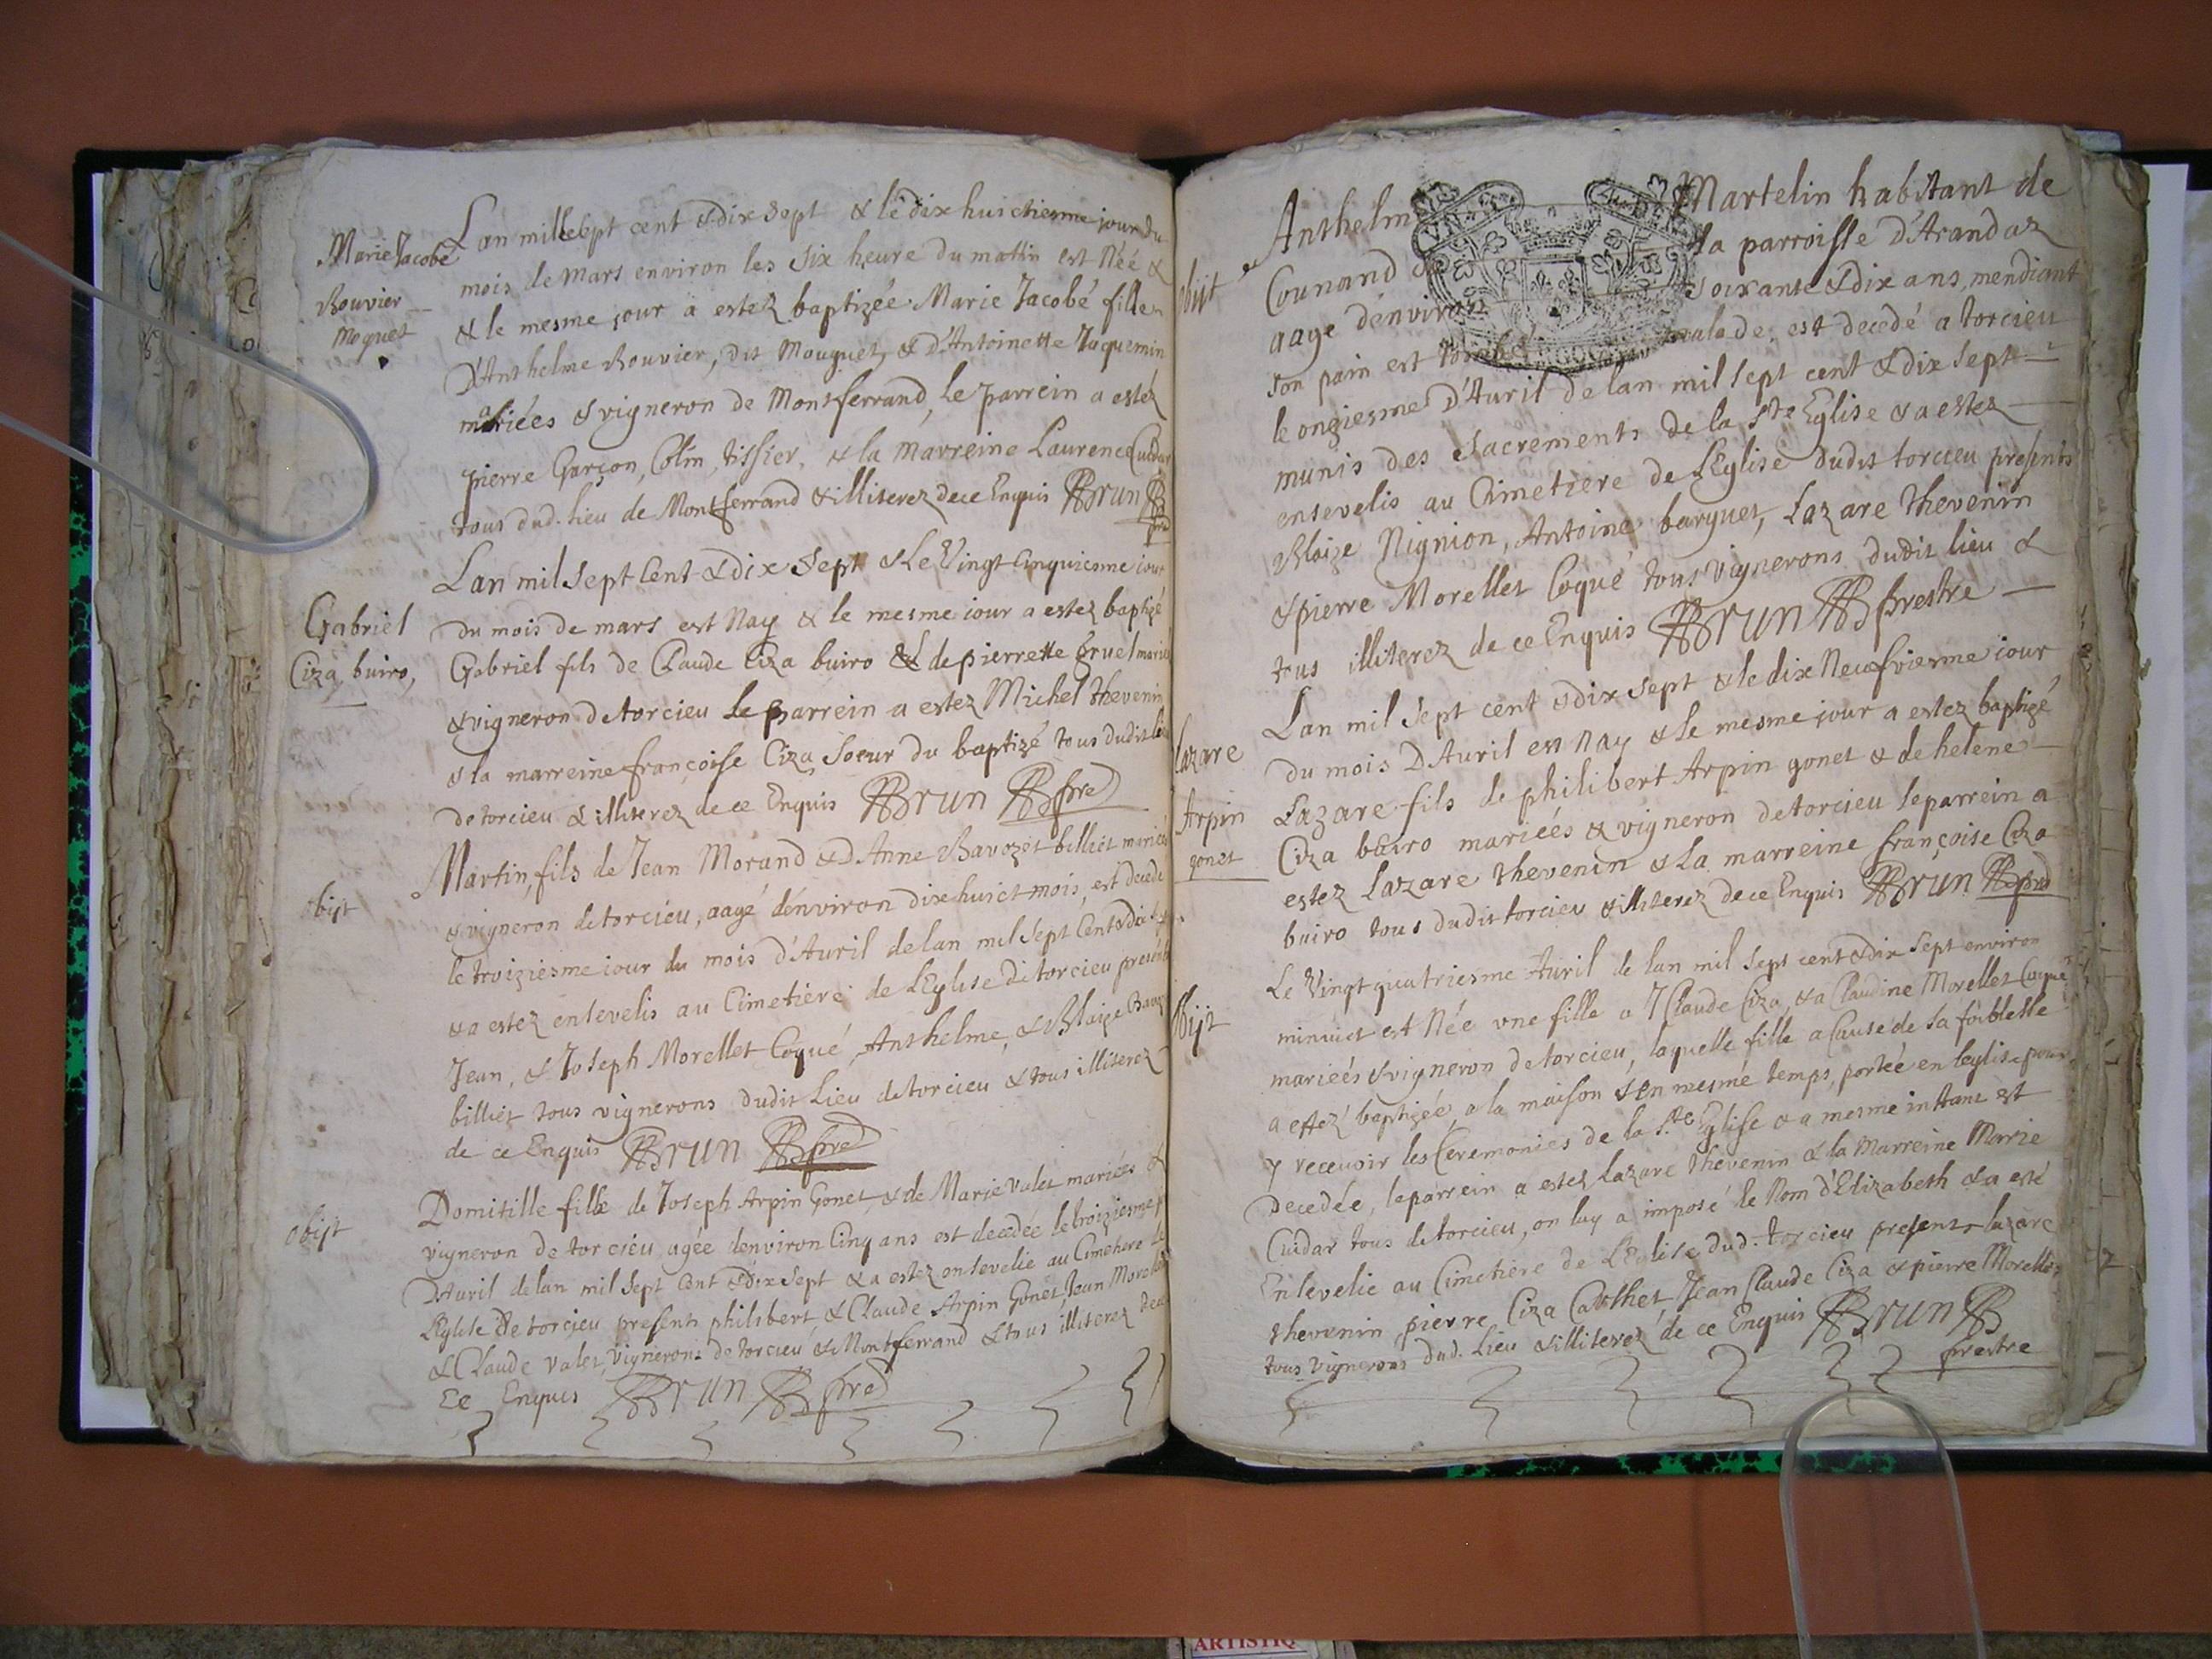 Marie Jacobé
Rouvier
Moguet
Lan mille sept cent & dix sept & le dix huictiesme jour du
mois de Mars environ les six heure du mattin est Née &
& le mesme jour a estez baptizée Marie Jacobé fille
D'Anthelme Rouvier, dit Mouguet, & D'Antoinette Jaquemin
mariées & vigneron de Montferrand, Le parrein a estéz
pierre Garçon, Colin, tissier, & la marreine Laurence Cuidar
tous dud. lieu de Montferrand & illiterez de ce Enquis Brun
pre
Gabriel
Ciza, buiro,
Lan mil sept Cent & dix sept & Le Vingt Cinquiesme iour
du mois de mars est Nay & le mesme iour a estez baptizé
Gabriel fils de Claude Ciza buiro & de pierrette Gruel mariés
& vigneron de torcieu Le parrein a estez Michel thevenin
& la marreine françoise Ciza Soeur du baptizé tous dudit lieu
de torcieu & illiterez de ce Enquis Brun pre
obijt
Martin, fils de Jean Morand & D'Anne Ravozet billiet mariés
& vigneron de torcieu, aagé d'environ dix huict mois, est decedé
le troiziesme iour du mois d'Avril de lan mil sept Cent & dix sept
& a estez ensevelis au Cimetiere de L'Eglise de torcieu presents
Jean, & Joseph Morellet Coqué, Anthelme, & Blaize Ravozet
billiet tous vignerons dudit Lieu de torcieu & tous illiterez
de ce Enquis Brun pre
obijt
Domitille fille de Joseph Arpin Gonet, & de Marie Valet mariées &
vigneron de torcieu agée d'environ Cinq ans est decedée le troiziesme
D'Avril de lan mil sept Cent & dix sept & a estez ensevelie au Cimetiere de
L'Eglise de torcieu presents philibert, & Claude Arpin Gonet Jean Morellet
& Claude Valet, Vignerons de torcieu & Montferrand & tous illiterez de
Ce Enquis Brun pre
obijt
Anthelme Martelin habitant de
Counand de la parroisse D'Arandaz
aagé d'environ soixante & dix ans, mendiant
son pain est tombé malade, est decedé a torcieu
le onziesme D'Avril de lan mil sept cent & dix sept
munis des Sacrements de la Ste Eglise & a estez
ensevelis au Cimetiere de L'Eglise dudit torcieu presents
Blaize Nignion, Antoine barguet, Lazare thevenin
& pierre Morellet Coqué tous Vignerons dudit lieu &
tus illiterez de ce Enquis Brun prestre
Lazare
Arpin
gonet
Lan mil sept cent & dix sept & le dix Neufviesme iour
du mois D'Avril est nay & le mesme jour a estez baptizé
Lazare fils de philibert Arpin gonet & de helene
Ciza buiro mariéés & vigneron de torcieu le parrein a
estez Lazare thevenin & La marreine françoise Ciza
buiro tous dudit torcieu & illiterez de ce Enquis Brun pre
Obijt
Le Vingt quatriesme Avril de lan mil sept cent & dix sept environ
minuict est Née une fille a J Claude Ciza, & a Claudine Morellet Coqué
mariéés & vigneron de torcieu, laquelle fille a Cause de sa foiblesse
a estez baptizée a la maison & en mesme temps, portée en leglise pour
y recevoir les Ceremonies de la Ste Eglise & a mesme instant est
Decedée, le parrein a estez Lazare thevenin & la Marreine Marie
Cuidar tous de torcieu, on luy a imposé le Nom d'Elizabeth & a esté
Ensevelie au Cimetiere de L'Eglise dud. torcieu presents lazare
thevenin pierre Ciza Cauthet, Jean Claude Ciza & pierre Morellet
tous Vignerons dud. Lieu & illiterez de ce Enquis Brun
prestre
ARTISTIQ